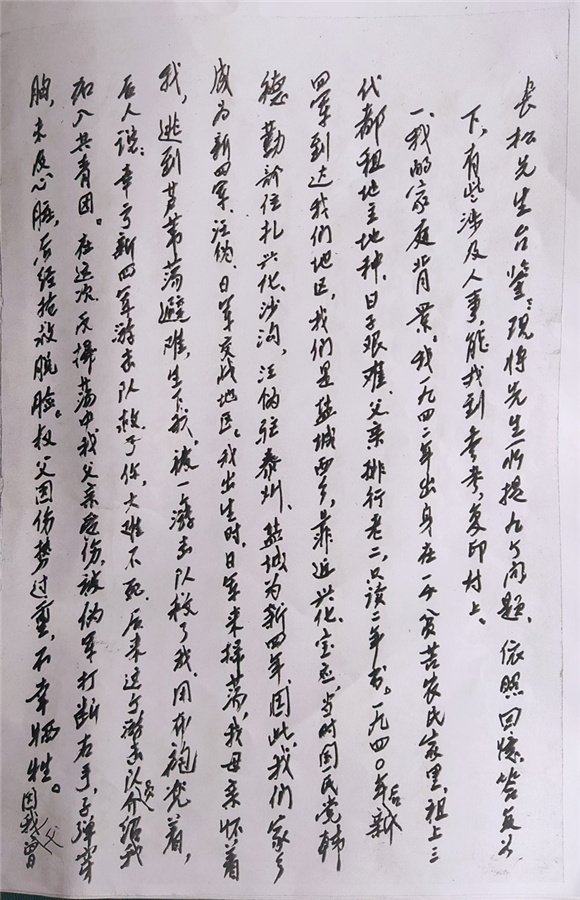 长松先生台鉴：现将先生所提九个问题，依照回忆答复以
下，有些涉及人事，能找到参考，复印付上。
一、我的家庭背景。我一九四二年出身在一个贫苦农民家里，祖上三
代都租地主地种，日子艰难，父亲排行老二，只读二年书。一九四〇年后新
四军到达我们地区，我们是盐城西乡，靠近兴化、宝应，当时国民党韩
德勤部住扎兴化、沙沟，汪伪驻泰州、盐城为新四军，因此，我们家乡
成为新四军、汪伪、日军交战地区。我出生时，日军来掃荡，我母亲怀着
我，逃到芦苇荡避难，生下我，被一个游击队救了我，用布袍兜着，
后人说：幸亏新四军游击队救了你，大难不死，后来这个游击队员介绍我
加入共青团。在这次反掃荡中，我父亲受伤，被伪军打断右手，子弹穿
胸，未及心脏，后经抢救脱险。叔父因伤势过重，不幸牺牲。
因我曾父